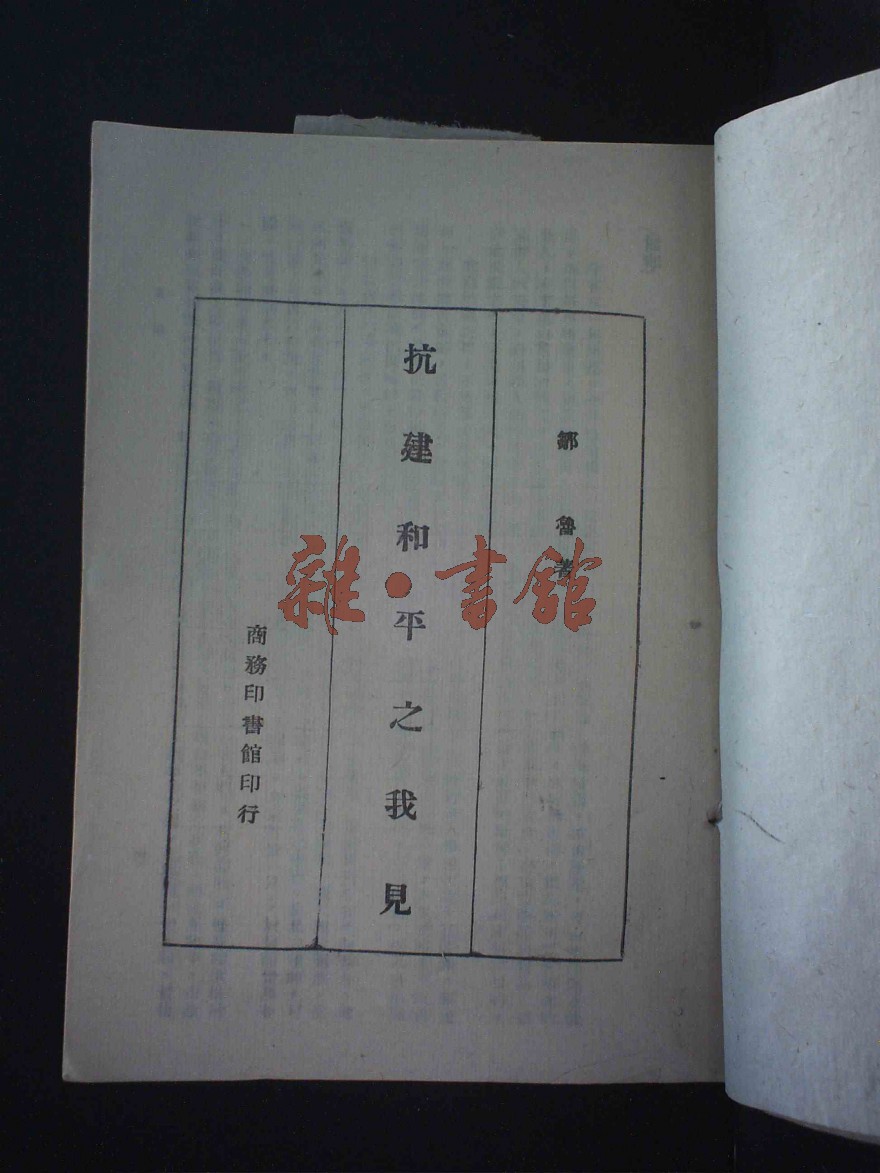 鄒魯著
抗建和平之我見
商務印書館印行
雜·書館